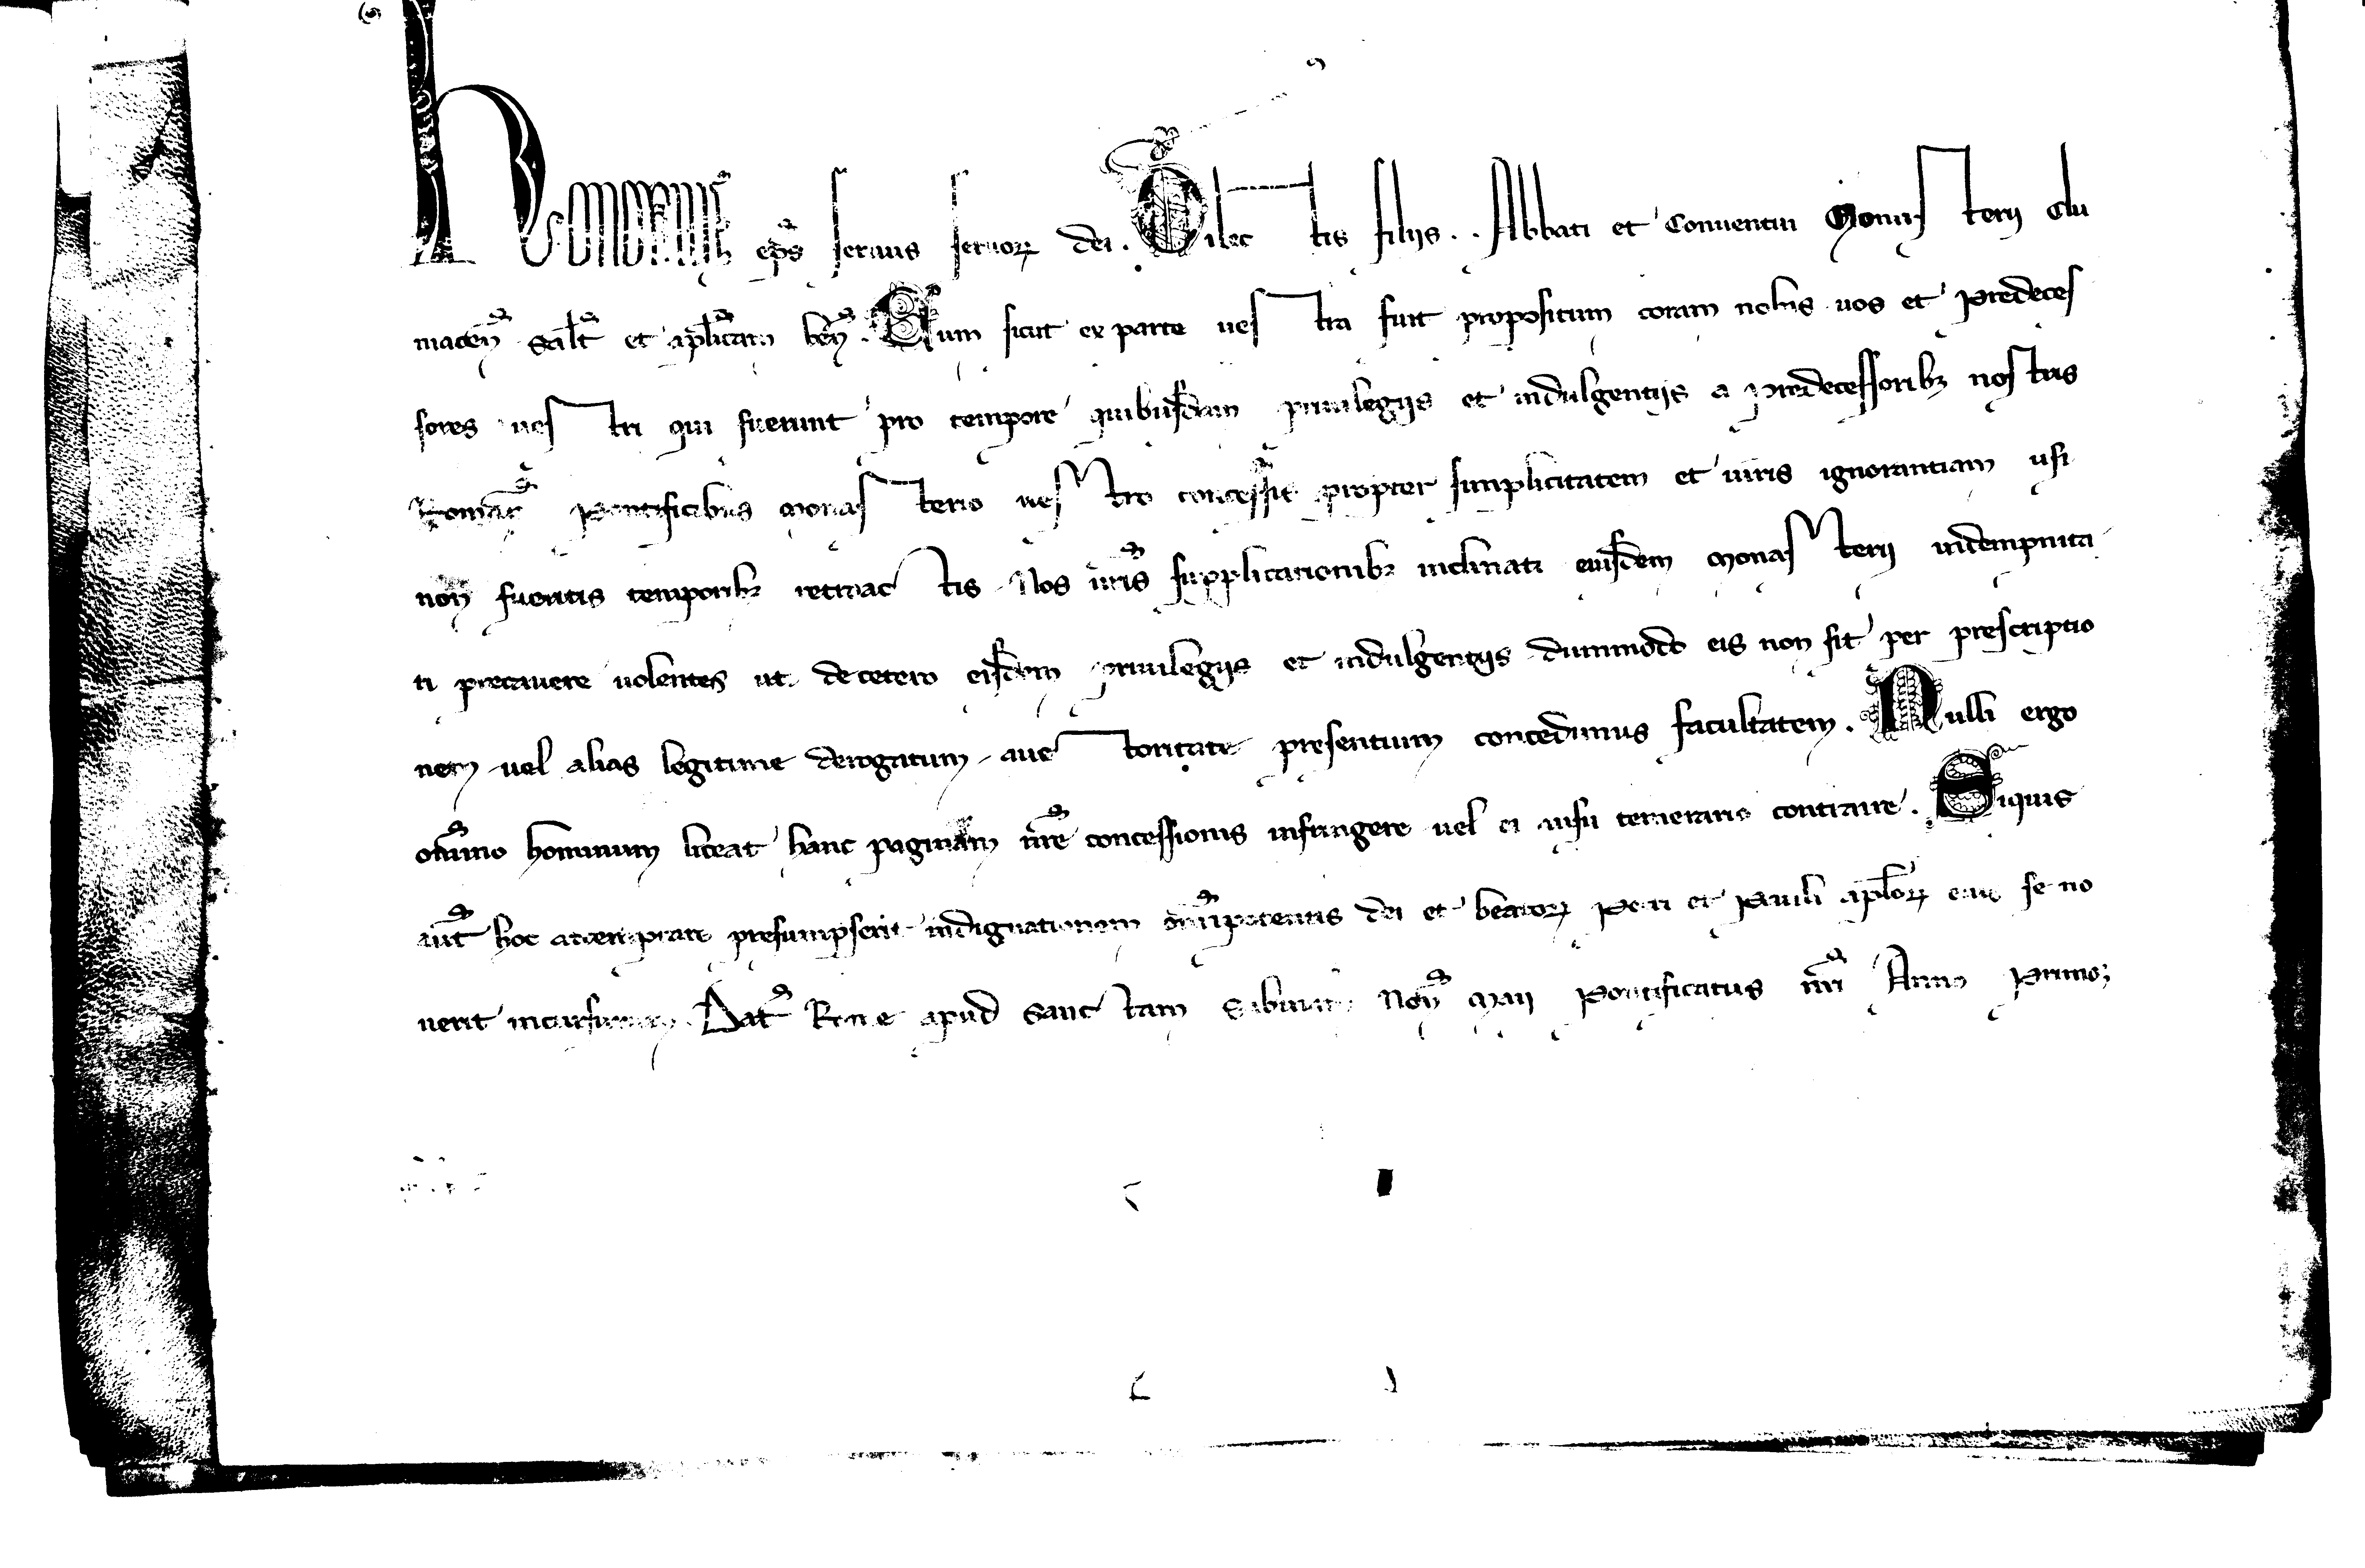 honorius ep̄s seruus seruoꝝ dei. Dilectis filijs .. Abbati et Conuentui Monasterij Clu
niaceñ Salt̄ et ap̄licam beñ. Cum sicut ex parte uestra fuit propositum coram nobis uos et Predeces
sores uestri qui fuerunt pro tempore quibusdam priuilegijs et indulgentijs a Predecessoribꝫ nostris
Romañ Pontificibus Monasterio uestro concessis propter simplicitatem et iuris ignorantiam usi
non fueritis temporibꝫ retroactis. Nos ur̄is supplicationibꝫ inclinati eiusdem Monasterij indempnita
ti precauere uolentes ut decetero eisdem priuilegijs et indulgentijs dummodo eis non sit per prescriptio
nem uel alias legitime derogatum auctoritate presentium concedimus facultatem. Nulli ergo
om̄ino hominum liceat hanc paginam nr̄e concessionis infringere uel ei ausu temerario contraire. Siquis
aut̄ hoc attemptare presumpserit indignationem om̄ipotentis dei et beatoꝝ Petri et Pauli ap̄loꝝ eius se no
uerit incursurum. Dat̄ Rome apud Sanctam Sabinam Noñ Maij Pontificatus nr̄i Anno Primo;